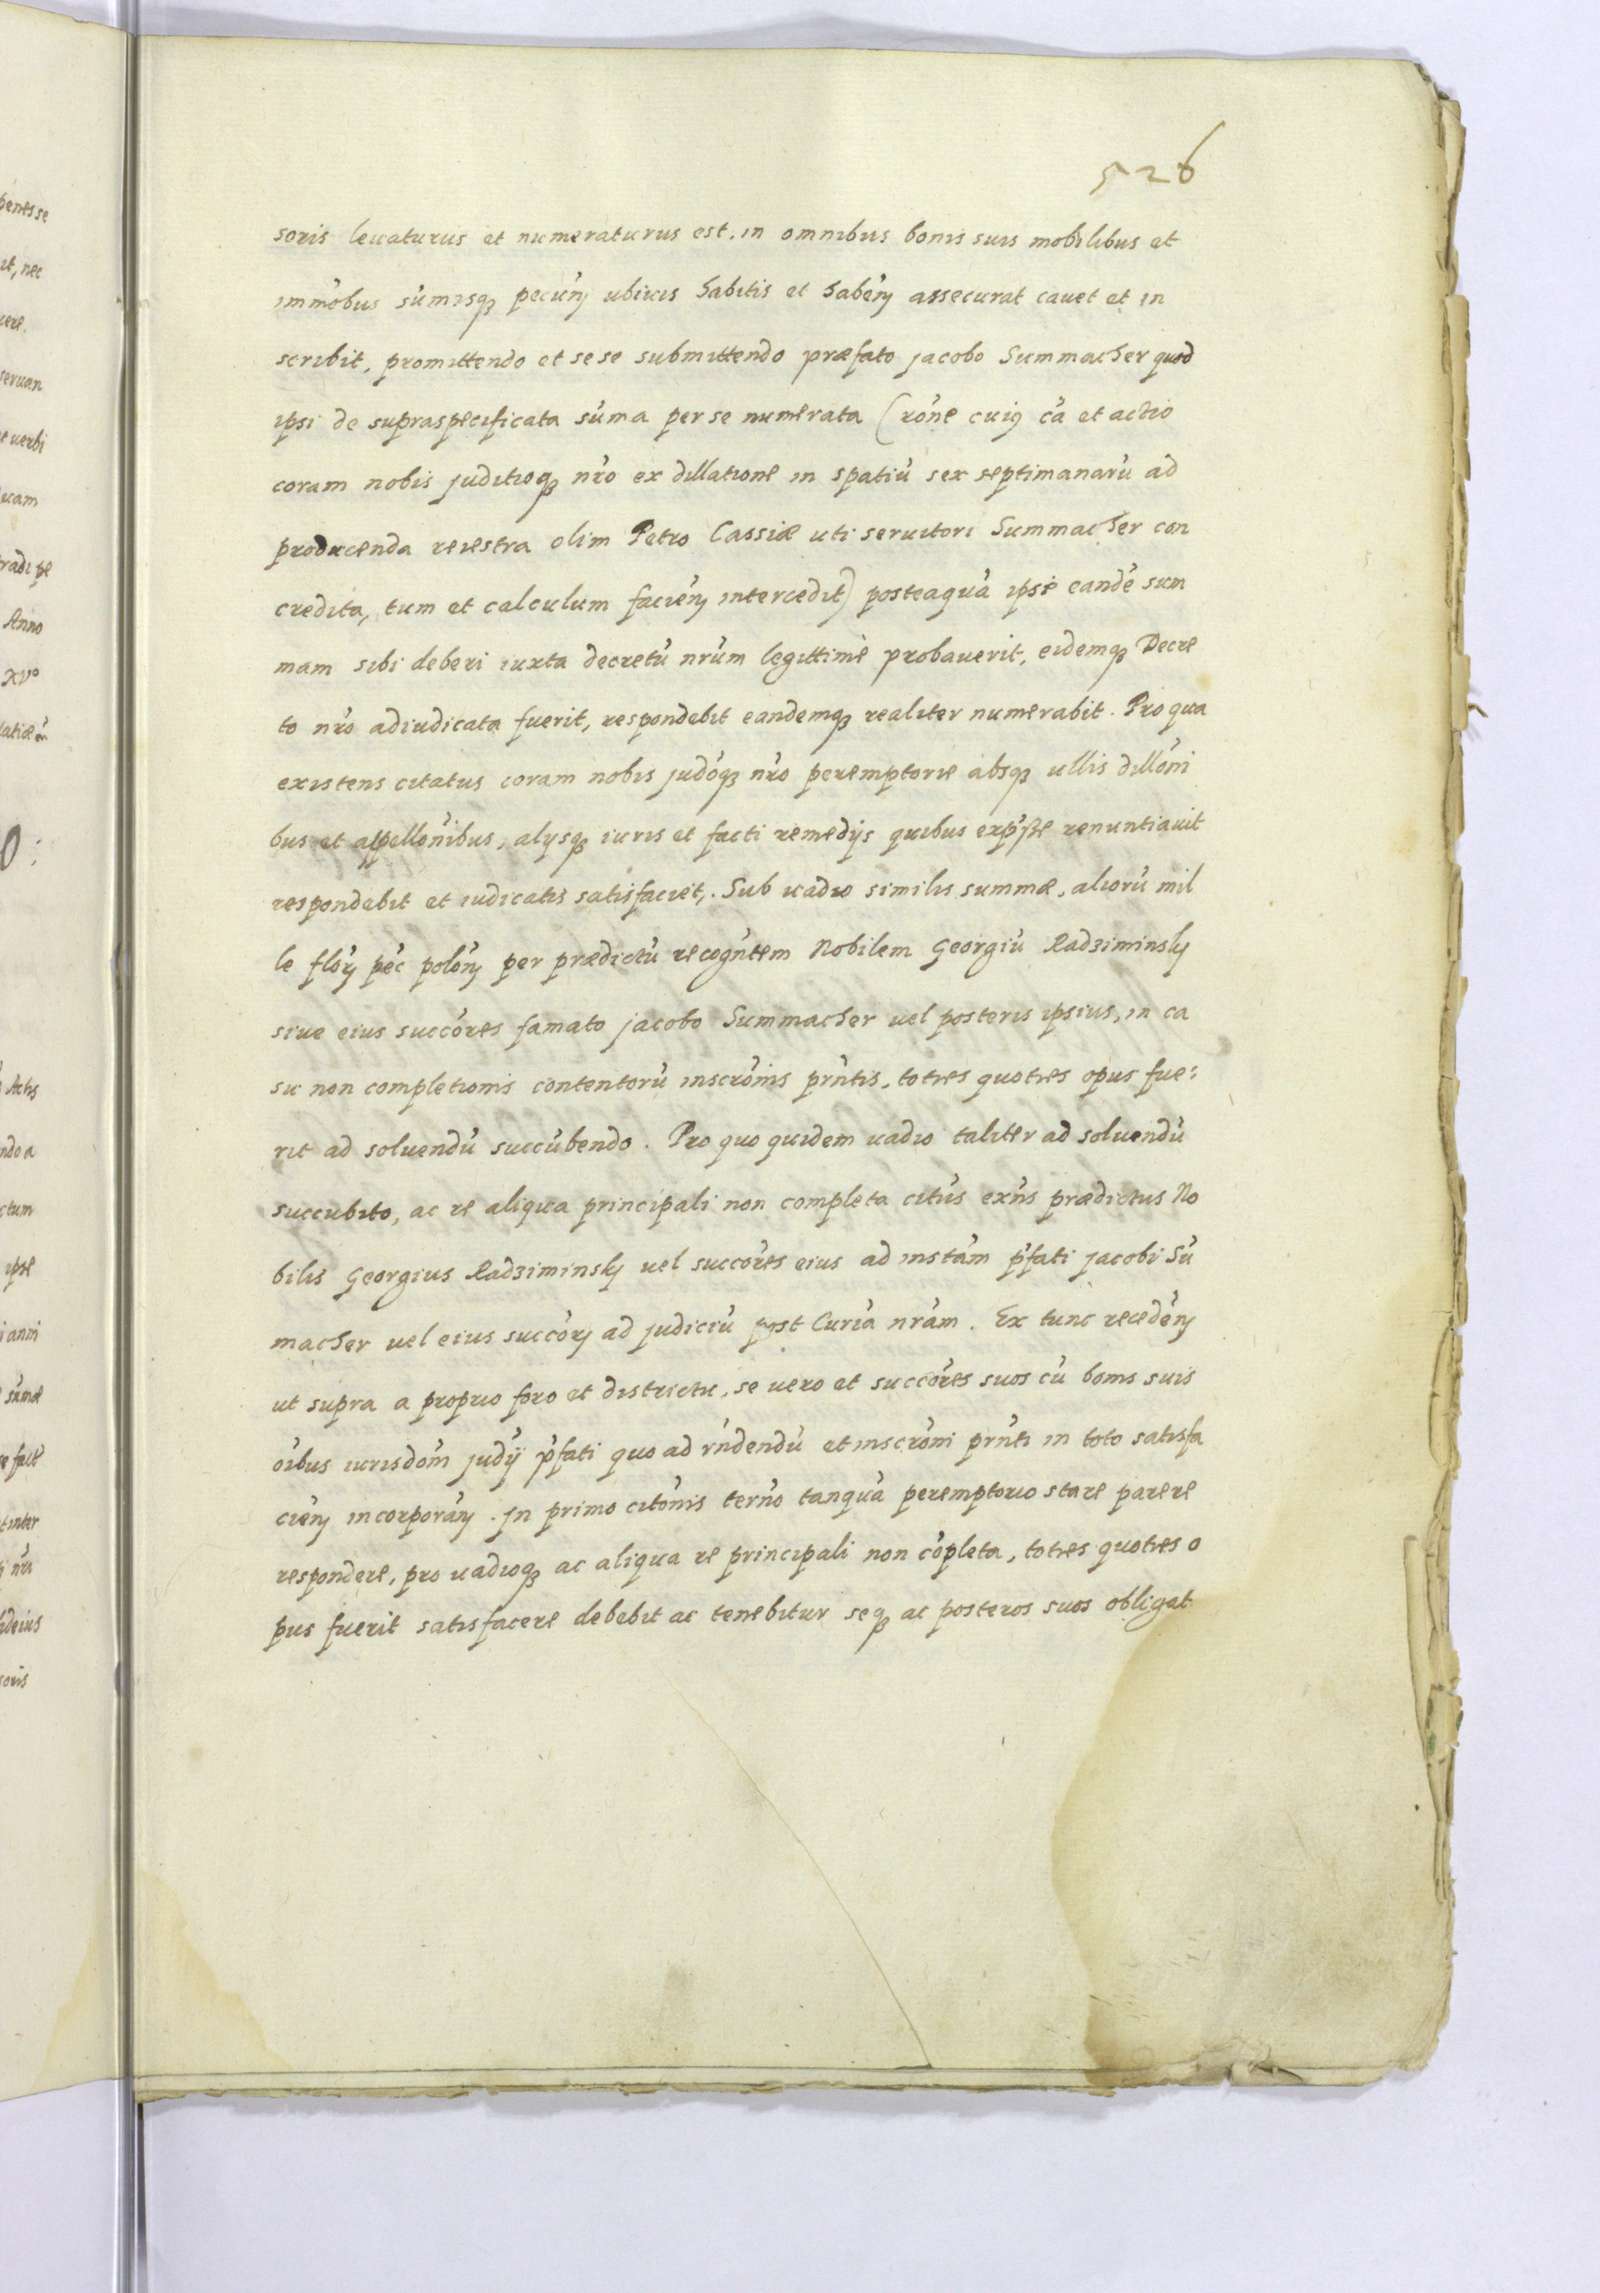 526
soris levaturus et numeraturus est, in omnibus bonis suis mobilibus et
immo᷑bus su᷑misq₃ pecu᷑n᷑ ubivis habitis et habe᷑n᷑ assecurat cavet et in
scribit, promittendo et sese submittendo præfato Jacobo Summacher quod
ipsi de supraspecificata su᷑ma per se numerata (ro᷑ne cui₉ ca᷑ et actio
coram nobis juditioq₃ nr᷑o ex dillatione in spatiu᷑ sex septimanaru᷑ ad
producenda reiestra olim Petro Cassiæ uti servitori Summacher con
credita, tum et calculum facie᷑n᷑ intercedit) posteaqua᷑ ipse eande᷑ sum
mam sibi deberi iuxta decretu᷑ nr᷑um legittimè probaverit, eidemq₃ Decre
to nr᷑o adiudicata fuerit, respondebit eandemq₃ realiter numerabit. Pro qua
existens citatus coram nobis judo᷑q₃ nr᷑o peremptorie absq₃ ullis dillo᷑ni
bus et appello᷑nibus, alysq₃ iuris et facti remedijs quibus exp᷑sse renuntiavit
respondebit et iudicatis satisfaciet,. Sub vadio similis summæ, alioru᷑ mil
le flor᷑ pec᷑ polon᷑ per prædictu᷑ recogn᷑tem Nobilem Georgiu᷑ Radziminsky
sive eius succo᷑res famato Jacobo Summacher vel posteris ipsius, in ca
su non completionis contentoru᷑ inscro᷑nis pr᷑ntis, toties quoties opus fue:
rit ad solvendu᷑ succu᷑bendo. Pro quo quidem vadio taliter ad solvendu᷑
succubito, ac re aliqua principali non completa citu᷑s ex᷑ns prædictus No
bilis Georgius Radziminsky vel succo᷑res eius ad insta᷑m p᷑fati Jacobi Su᷑
macher vel eius succor᷑ ad judiciu᷑ post Curia᷑ nr᷑am. Ex tunc recede᷑n᷑
ut supra a proprio foro et districtu, se vero et succo᷑res suos cu᷑ bonis suis
o᷑ibus iurisdo᷑m judy᷑ p᷑fati quo ad rn᷑dendu᷑ et inscro᷑ni pr᷑nti in toto satisfa
cien᷑ incorporan᷑. In primo cito᷑nis ter᷑no tanqua᷑ peremptorio stare parere
respondere, pro vadioq₃ ac aliqua re principali non co᷑pleta, toties quoties o
pus fuerit satisfacere debebit ac tenebitur seq₃ ac posteros suos obligat